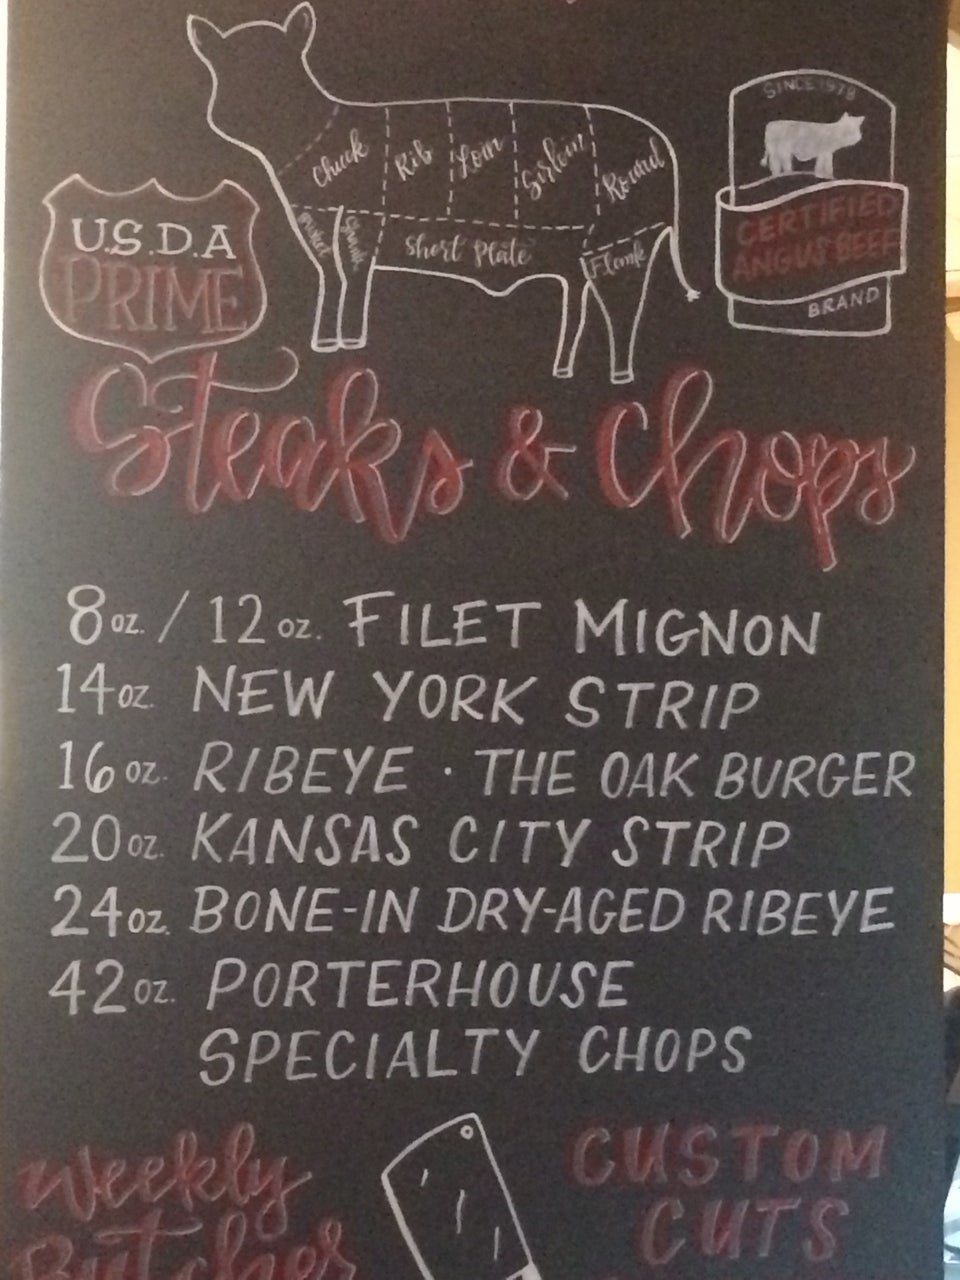 SINCE 1978
Chuck Rib Loin Sirloin Round
U.S.D.A
PRIME
Brisket Shank Short Plate Flank
CERTIFIED
ANGUS BEEF
BRAND
Steaks & Chops
8 oz. / 12 oz. FILET MIGNON
14 oz. NEW YORK STRIP
16 oz. RIBEYE · THE OAK BURGER
20 oz. KANSAS CITY STRIP
24 oz. BONE-IN DRY-AGED RIBEYE
42 oz. PORTERHOUSE
SPECIALTY CHOPS
Weekly
Butcher
CUSTOM
CUTS